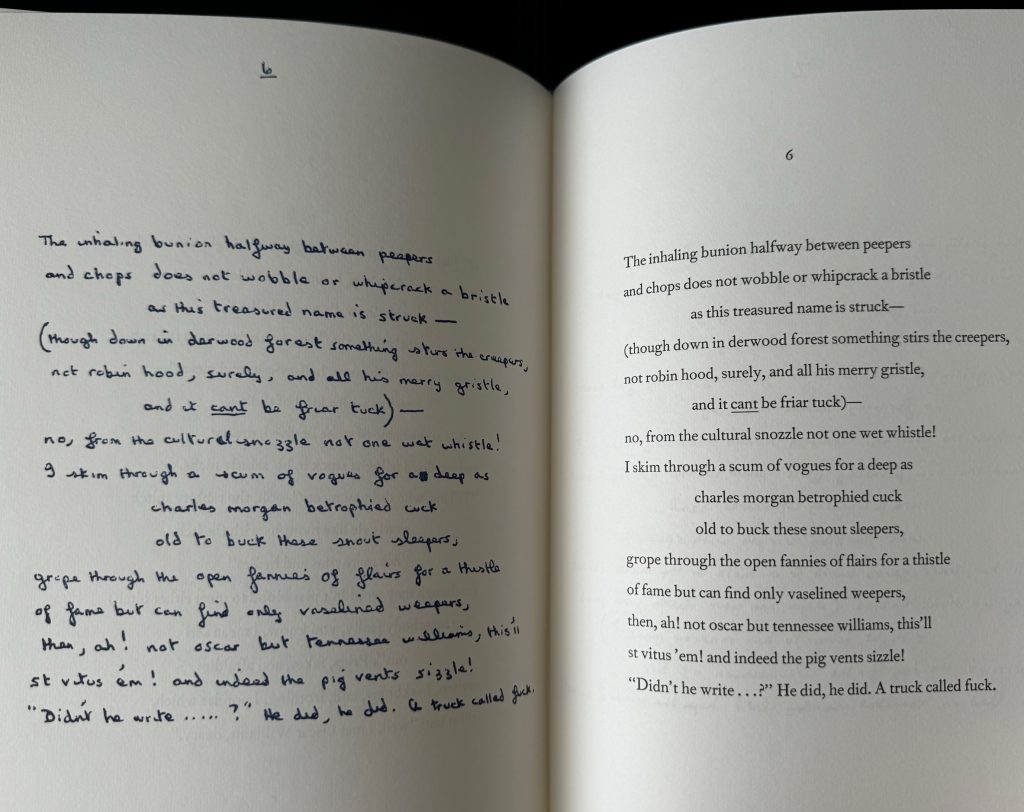 6
The inhaling bunion halfway between peepers
and chops does not wobble or whipcrack a bristle
as this treasured name is struck —
(though down in derwood forest something stirs the creepers,
not robin hood, surely, and all his merry gristle,
and it cant be friar tuck) —
no, from the cultural snozzle not one wet whistle!
I skim through a scum of vogues for a deep as
charles morgan betrophied cuck
old to buck these snout sleepers,
grope through the open fannies of flairs for a thistle
of fame but can find only vaselined weepers,
then, ah! not oscar but tennessee williams, this'll
st vitus 'em! and indeed the pig vents sizzle!
"Didn't he write .....?" He did, he did. A truck called fuck.
6
The inhaling bunion halfway between peepers
and chops does not wobble or whipcrack a bristle
as this treasured name is struck—
(though down in derwood forest something stirs the creepers,
not robin hood, surely, and all his merry gristle,
and it cant be friar tuck)—
no, from the cultural snozzle not one wet whistle!
I skim through a scum of vogues for a deep as
charles morgan betrophied cuck
old to buck these snout sleepers,
grope through the open fannies of flairs for a thistle
of fame but can find only vaselined weepers,
then, ah! not oscar but tennessee williams, this'll
st vitus 'em! and indeed the pig vents sizzle!
"Didn't he write . . .?" He did, he did. A truck called fuck.